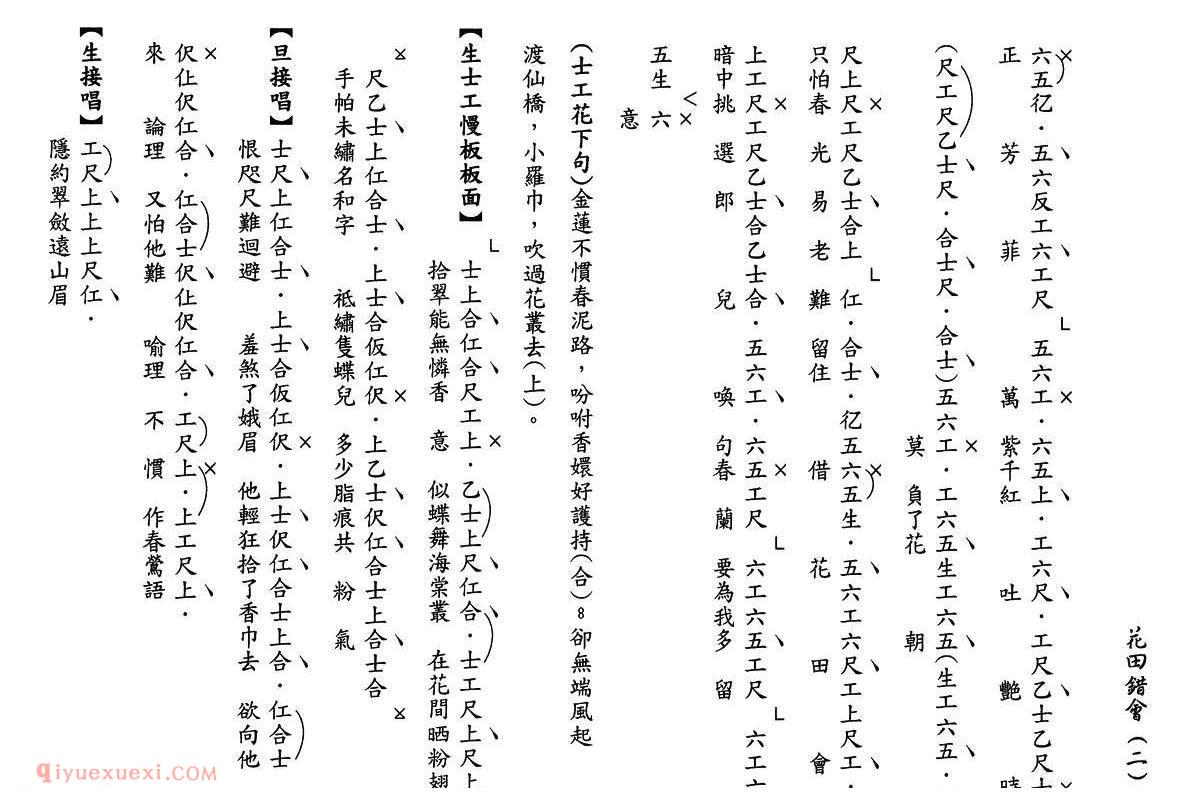 花田錯會（二）
六五亿．五六反工六工尺 五六工．六五上．工六尺．工尺乙士乙尺士
正 芳 菲 萬 紫千紅 吐 艷 時
（尺工尺乙士尺．合士尺．合士）五六工．工六五生工六五（生工六五．
莫 負了花 朝
尺上尺工尺乙士合上 仜．合士．亿五六五生．五六工六尺工上尺工．
只怕春 光 易 老 難 留 住 借 花 田 會
上工尺工尺乙士合乙士合．五六工．六五工尺 六工六五工尺 六工六
暗中挑 選 郎 兒 喚 句春蘭 要為我多 留
五生 六
意
（士工花下句）金蓮不慣春泥路，吩咐香嬛好護持（合）。卻無端風起
渡仙橋，小羅巾，吹過花叢去（上）。
【生士工慢板板面】 士上合仜合尺工上．乙士上尺仜合．士工尺上尺上
拾翠能無憐香 意 似蝶舞海棠叢 在花間晒粉翅
尺乙士上仜合士．上士合仮仜伬．上乙士伬仜合士上合士合
手帕未繡名和字 祗繡隻蝶兒 多少脂痕共 粉 氣
【旦接唱】士尺上仜合士．上士合仮仜伬．上士伬仜合士上合．仜合士
恨咫尺難迴避 羞煞了娥眉 他輕狂拾了香巾去 欲向他
伬仩伬仜合．仜合士伬仩伬仜合．工尺上．上工尺上．
來 論理 又怕他難 喻理 不 慣 作春鶯語
【生接唱】工尺上上上尺仜．
隱約翠斂遠山眉
qiyuexuexi.COM